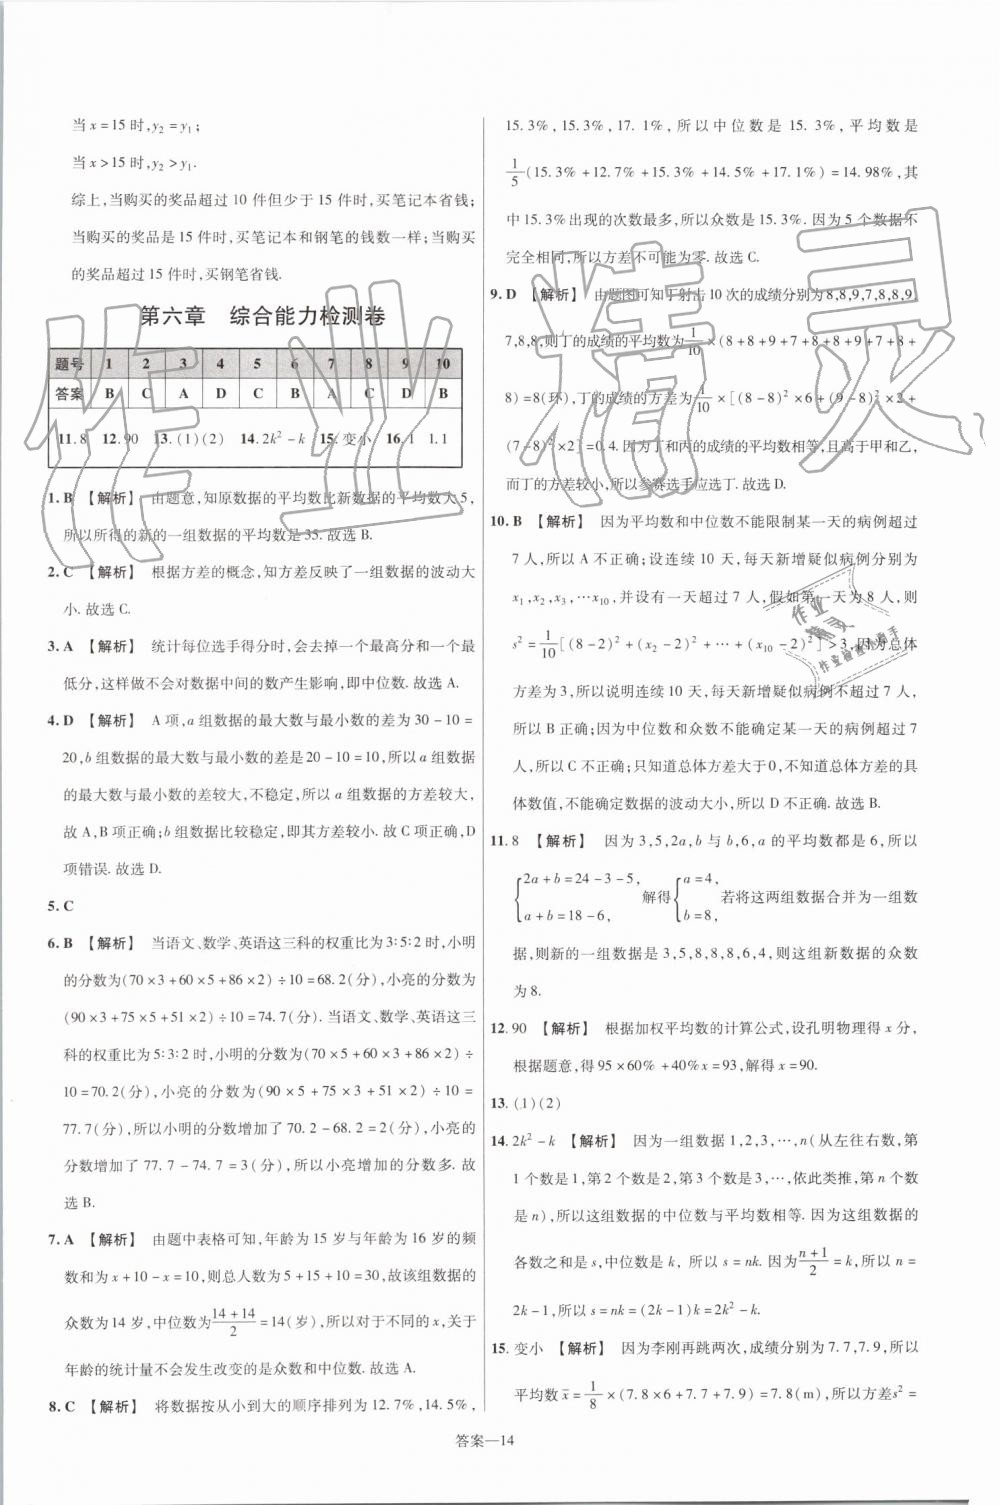 当x=15时,y₂=y₁;
当x>15时,y₂>y₁.
综上,当购买的奖品超过10件但少于15件时,买笔记本省钱;
当购买的奖品是15件时,买笔记本和钢笔的钱数一样;当购买
的奖品超过15件时,买钢笔省钱.
第六章 综合能力检测卷
题号 1 2 3 4 5 6 7 8 9 10
答案 B C A D C B A C D B
11.8 12.90 13.(1)(2) 14.2k²-k 15.变小 16.1 1.1
1.B 【解析】 由题意,知原数据的平均数比新数据的平均数大5,
所以所得的新的一组数据的平均数是35.故选B.
2.C 【解析】 根据方差的概念,知方差反映了一组数据的波动大
小.故选C.
3.A 【解析】 统计每位选手得分时,会去掉一个最高分和一个最
低分,这样做不会对数据中间的数产生影响,即中位数.故选A.
4.D 【解析】 A项,a组数据的最大数与最小数的差为30-10=
20,b组数据的最大数与最小数的差是20-10=10,所以a组数据
的最大数与最小数的差较大,不稳定,所以a组数据的方差较大,
故A,B项正确;b组数据比较稳定,即其方差小.故C项正确,D
项错误.故选D.
5.C
6.B 【解析】 当语文、数学、英语这三科的权重比为3:5:2时,小明
的分数为(70×3+60×5+86×2)÷10=68.2(分),小亮的分数为
(90×3+75×5+51×2)÷10=74.7(分).当语文、数学、英语这三
科的权重比为5:3:2时,小明的分数为(70×5+60×3+86×2)÷
10=70.2(分),小亮的分数为(90×5+75×3+51×2)÷10=
77.7(分),所以小明的分数增加了70.2-68.2=2(分),小亮的
分数增加了77.7-74.7=3(分),所以小亮增加的分数多.故
选B.
7.A 【解析】 由题中表格可知,年龄为15岁与年龄为16岁的频
数和为x+10-x=10,则总人数为5+15+10=30,故该组数据的
众数为14岁,中位数为(14+14)/2=14(岁),所以对于不同的x,关于
年龄的统计量不会发生改变的是众数和中位数.故选A.
8.C 【解析】 将数据按从小到大的顺序排列为12.7%,14.5%,
15.3%,15.3%,17.1%,所以中位数是15.3%,平均数是
1/5(15.3%+12.7%+15.3%+14.5%+17.1%)=14.98%,其
中15.3%出现的次数最多,所以众数是15.3%.因为5个数据不
完全相同,所以方差不可能为零.故选C.
9.D 【解析】 由题图可知丁射击10次的成绩分别为8,8,9,7,8,8,9,
7,8,8,则丁的成绩的平均数为1/10×(8+8+9+7+8+8+9+7+8+
8)=8(环),丁的成绩的方差为1/10×[(8-8)²×6+(9-8)²×2+
(7-8)²×2]=0.4.因为丁和丙的成绩的平均数相等,且高于甲和乙,
而丁的方差较小,所以参赛选手应选丁.故选D.
10.B 【解析】 因为平均数和中位数不能限制某一天的病例超过
7人,所以A不正确;设连续10天,每天新增疑似病例分别为
x₁,x₂,x₃,…x₁₀,并设有一天超过7人,假如第一天为8人,则
s²=1/10[(8-2)²+(x₂-2)²+…+(x₁₀-2)²]>3,因为总体
方差为3,所以说明连续10天,每天新增疑似病例不超过7人,
所以B正确;因为中位数和众数不能确定某一天的病例超过7
人,所以C不正确;只知道总体方差大于0,不知道总体方差的具
体数值,不能确定数据的波动大小,所以D不正确.故选B.
11.8 【解析】 因为3,5,2a,b与b,6,a的平均数都是6,所以
{2a+b=24-3-5, a+b=18-6, 解得{a=4, b=8, 若将这两组数据合并为一组数
据,则新的一组数据为3,5,8,8,8,6,4,则这组新数据的众数
为8.
12.90 【解析】 根据加权平均数的计算公式,设孔明物理得x分,
根据题意,得95×60%+40%x=93,解得x=90.
13.(1)(2)
14.2k²-k 【解析】 因为一组数据1,2,3,…,n(从左往右数,第
1个数是1,第2个数是2,第3个数是3,…,依此类推,第n个数
是n),所以这组数据的中位数与平均数相等.因为这组数据的
各数之和是s,中位数是k,所以s=nk.因为(n+1)/2=k,所以n=
2k-1,所以s=nk=(2k-1)k=2k²-k.
15.变小 【解析】 因为李刚再跳两次,成绩分别为7.7,7.9,所以
平均数x̄=1/8×(7.8×6+7.7+7.9)=7.8(m),所以方差s²=
答案—14
作业精灵
作业
精灵
作业检查小助手